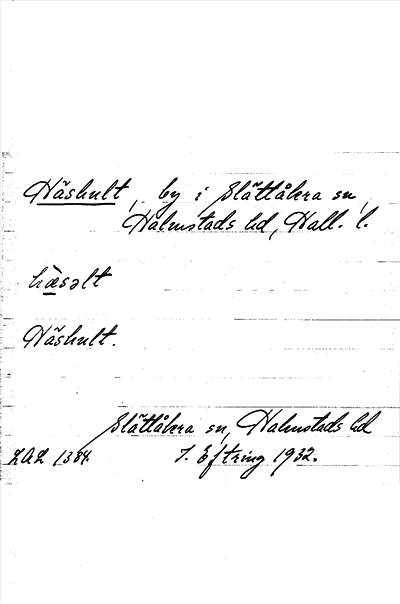 Häshult, by i Slättåkra sn,
Halmstads hd, Hall. l.
hæ̀səlt
Häshult.
Slättåkra sn, Halmstads hd
LAL 1384. J. Eftring 1932.